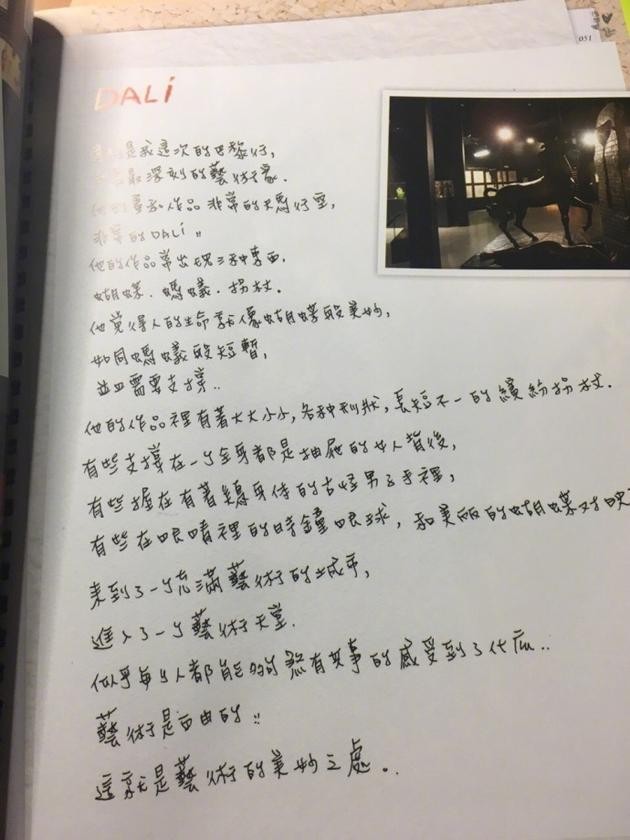 051
DALÍ
是我這次的巴黎行,
最深刻的藝術家.
他的畫和作品非常的天馬行空,
非常的DALÍ!!
他的作品常出現三種東西,
蝴蝶、螞蟻、拐杖.
他覺得人的生命就像蝴蝶般美妙,
如同螞蟻般短暫,
並且需要支撐..
他的作品裡有著大大小小,各种形狀,長短不一的繽紛拐杖.
有些支撐在一个全身都是抽屜的女人背後,
有些握在有著身体的古怪男子手裡,
有些在眼睛裡的時鐘眼球,和美麗的蝴蝶对映
來到了一个充滿藝術的城市,
進入了一个藝術天堂.
似乎每个人都能夠煞有其事的感受到了什麼..
藝術是自由的!!
這就是藝術的美妙之處..